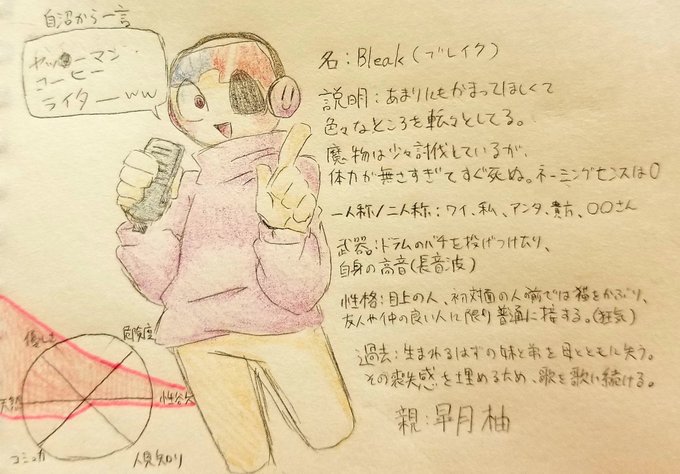 自沼から一言
ヤッーマン
コーヒー
ライターww
名：Bleak（ブレイク）
説明：あまりにもかまってほしくて
色々なところを転々としてる。
魔物は少々討伐しているが、
体力が無さすぎてすぐ死ぬ。ネーミングセンスは0
一人称/二人称：ワイ、私、アンタ、貴方、〇〇さん
武器：ドラムのバチを投げつけたり、
自身の高音(長音波)
性格：目上の人、初対面の人の前では猫をかぶり、
友人や仲の良い人に限り普通に接する。(狂気)
過去：生まれるはずの妹と弟を母とともに失う。
その喪失感を埋めるため、歌を歌い続ける。
親：皐月 柚
優しさ
危険度
天然
コミュ力
人見知り